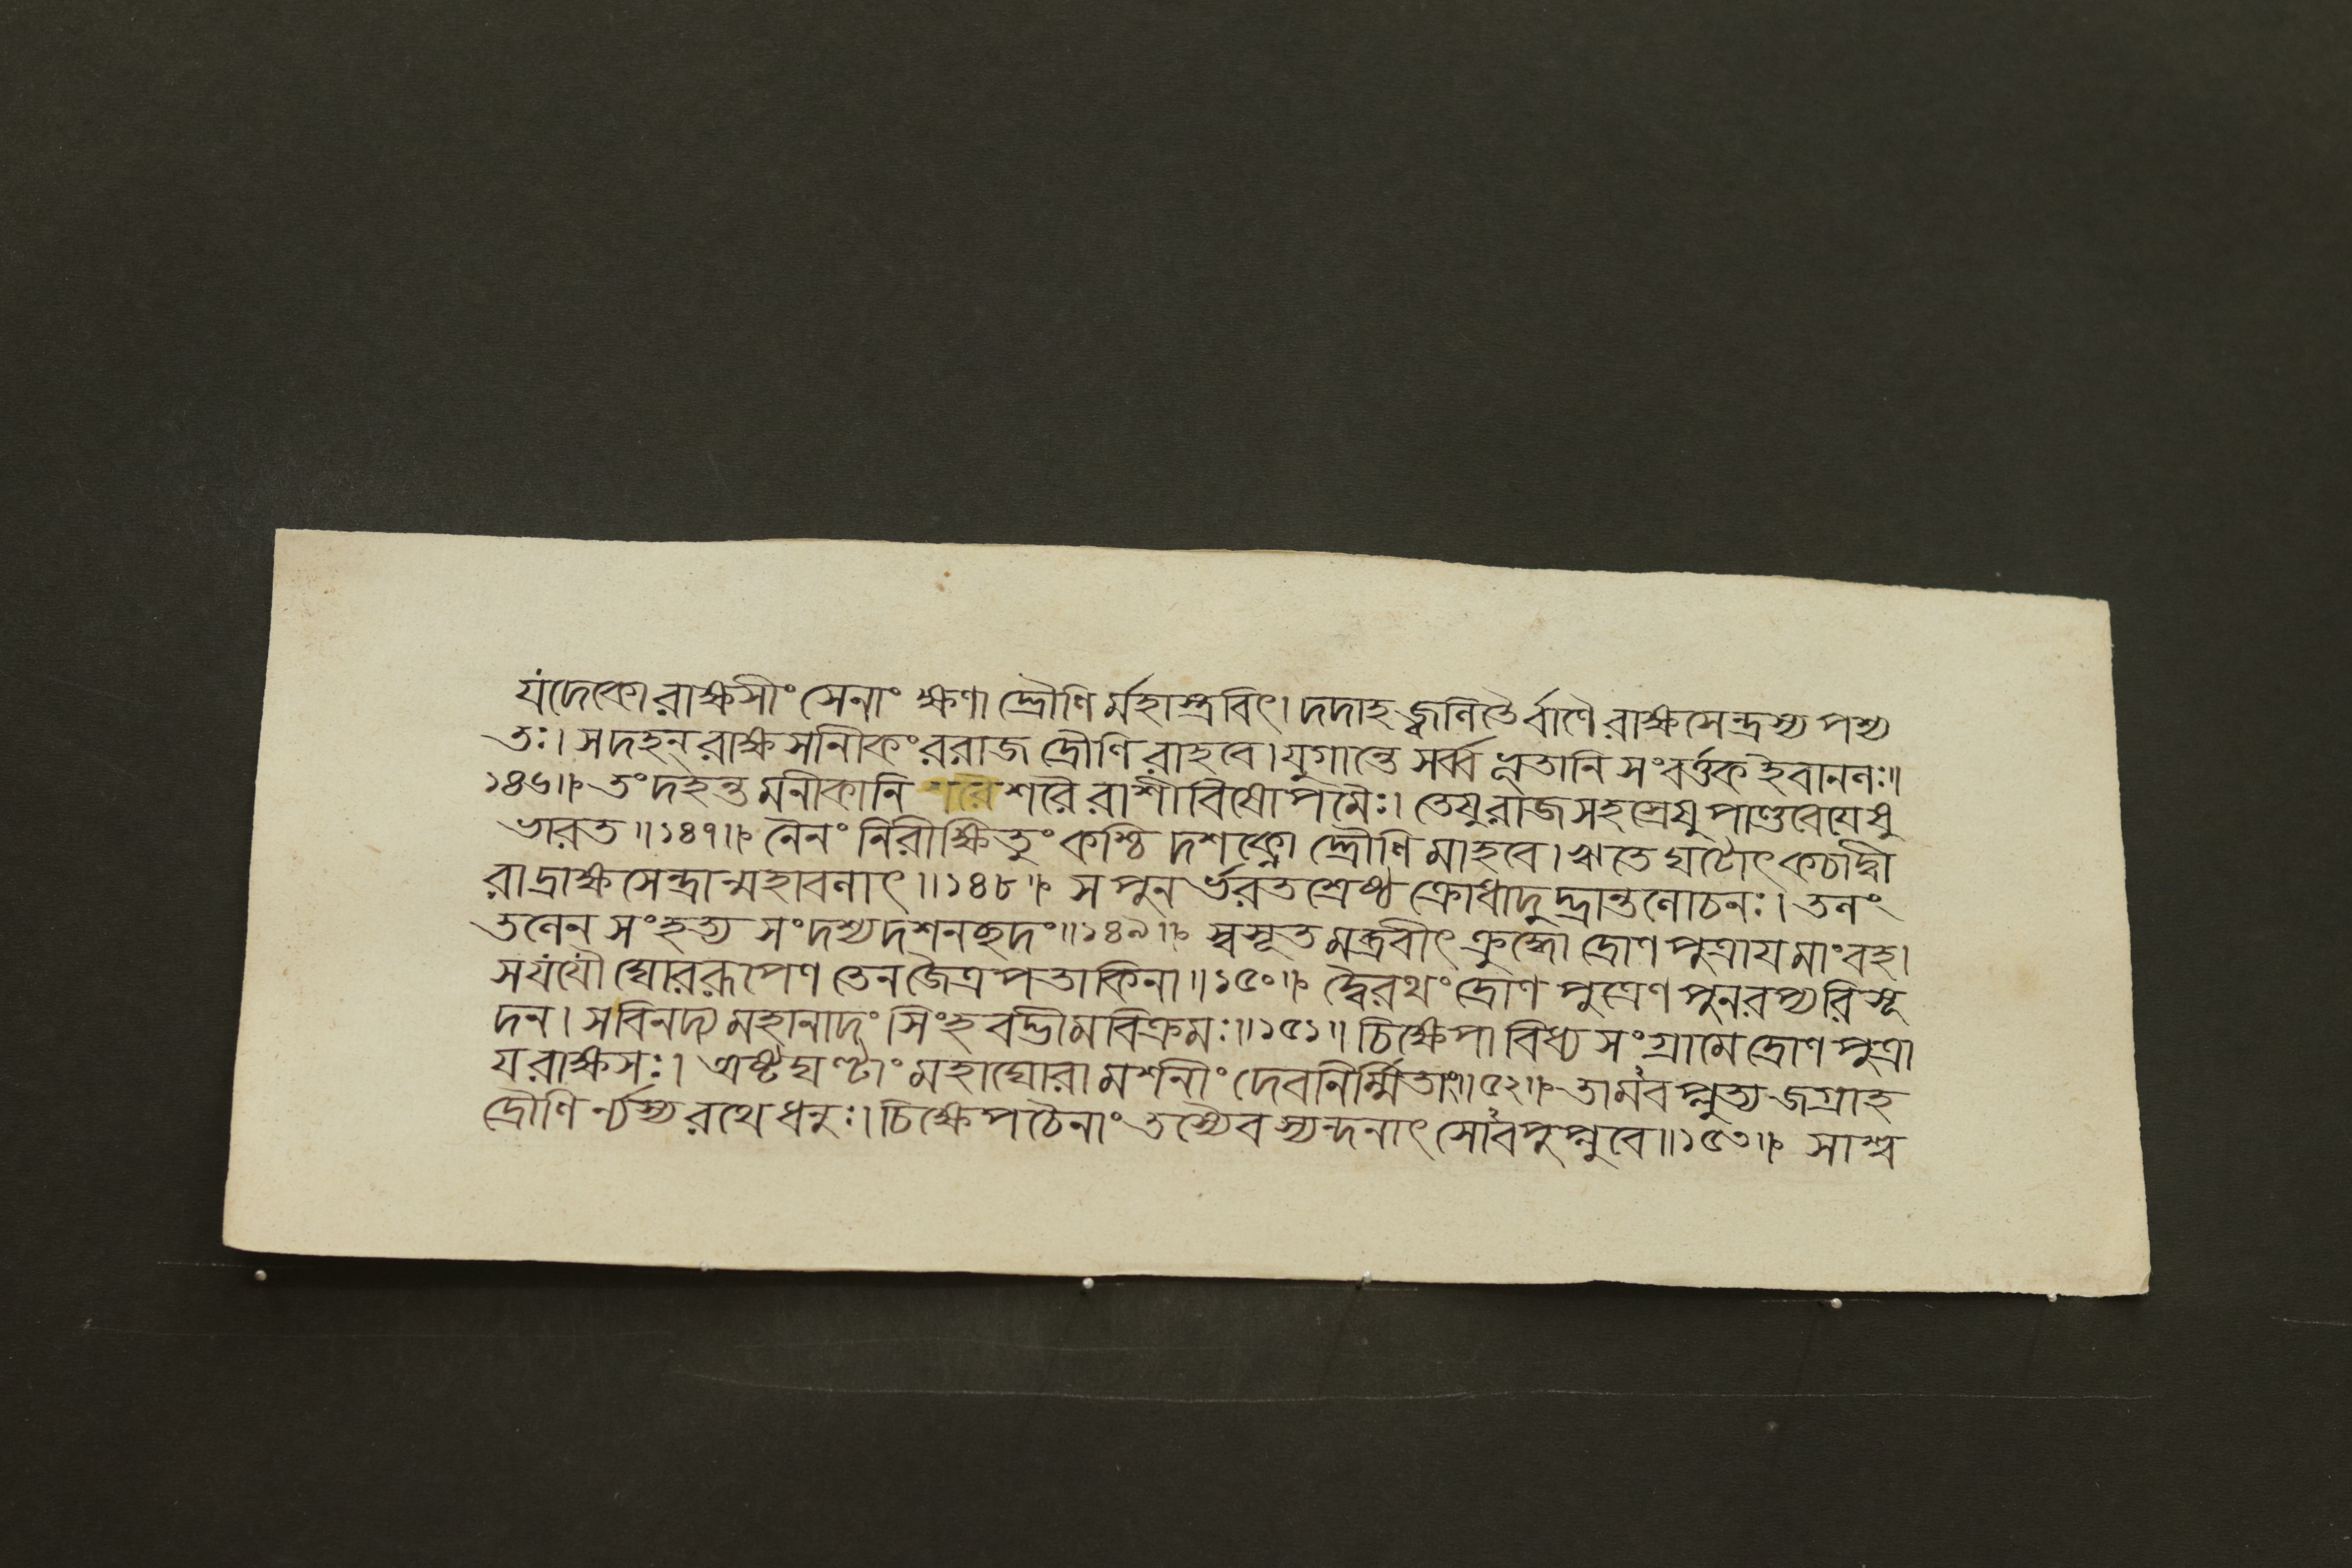 যদেকো রাক্ষসীং সেনাং ক্ষণা দ্দ্রৌণি র্মহাস্ত্রবিৎ। দদাহ জ্বলিতৈ র্বাণৈ রাক্ষসেন্দ্রস্য পশ্য
তঃ। স দহন্ রাক্ষসানীকং ররাজ দ্রৌণি রাহবে। যুগান্তে সর্ব্বভূতানি সংবর্ত্তক ইবাননঃ॥
১৪৬॥ তং দহন্ত মনীকানি শরৈ রাশীবিষোপমৈঃ। তেষু রাজসহস্রেষু পাণ্ডবেযেষু
ভারত॥১৪৭॥ নৈনং নিরীক্ষিতুং কশ্চি দশক্নো দ্দ্রৌণি মাহবে। ঋতে ঘটোৎকচাদ্বী
রাদ্রাক্ষসেন্দ্রান্মহাবনাৎ॥১৪৮॥ স পুন র্ভরতশ্রেষ্ঠ ক্রোধাদুদ্ভ্রান্তলোচনঃ। তলং
তলেন সংহত্য সংদশ্য দশনছদং॥১৪৯॥ স্বসূত মব্রবীৎ ক্রুদ্ধো দ্রোণপুত্রায মাং বহ।
স যযৌ ঘোররূপেণ তেন জৈত্রপতাকিনা॥১৫০॥ দ্বৈরথং দ্রোণপুত্রেণ পুনরপ্যরিসূ
দন। স বিনদ্য মহানাদং সিংহবদ্ভীমবিক্রমঃ॥১৫১॥ চিক্ষেপাবিধ্য সংগ্রামে দ্রোণপুত্রা
য রাক্ষসঃ। অষ্টঘণ্টাং মহাঘোরা মশনীং দেবনির্ম্মিতাং॥৫২॥ তামবপ্লুত্য জগ্রাহ
দ্রৌণি র্ন্যস্য রথে ধনুঃ। চিক্ষেপ চৈনাং তস্যৈব স্যন্দনাৎ সোবপুপ্লুবে॥১৫৩॥ সাশ্ব